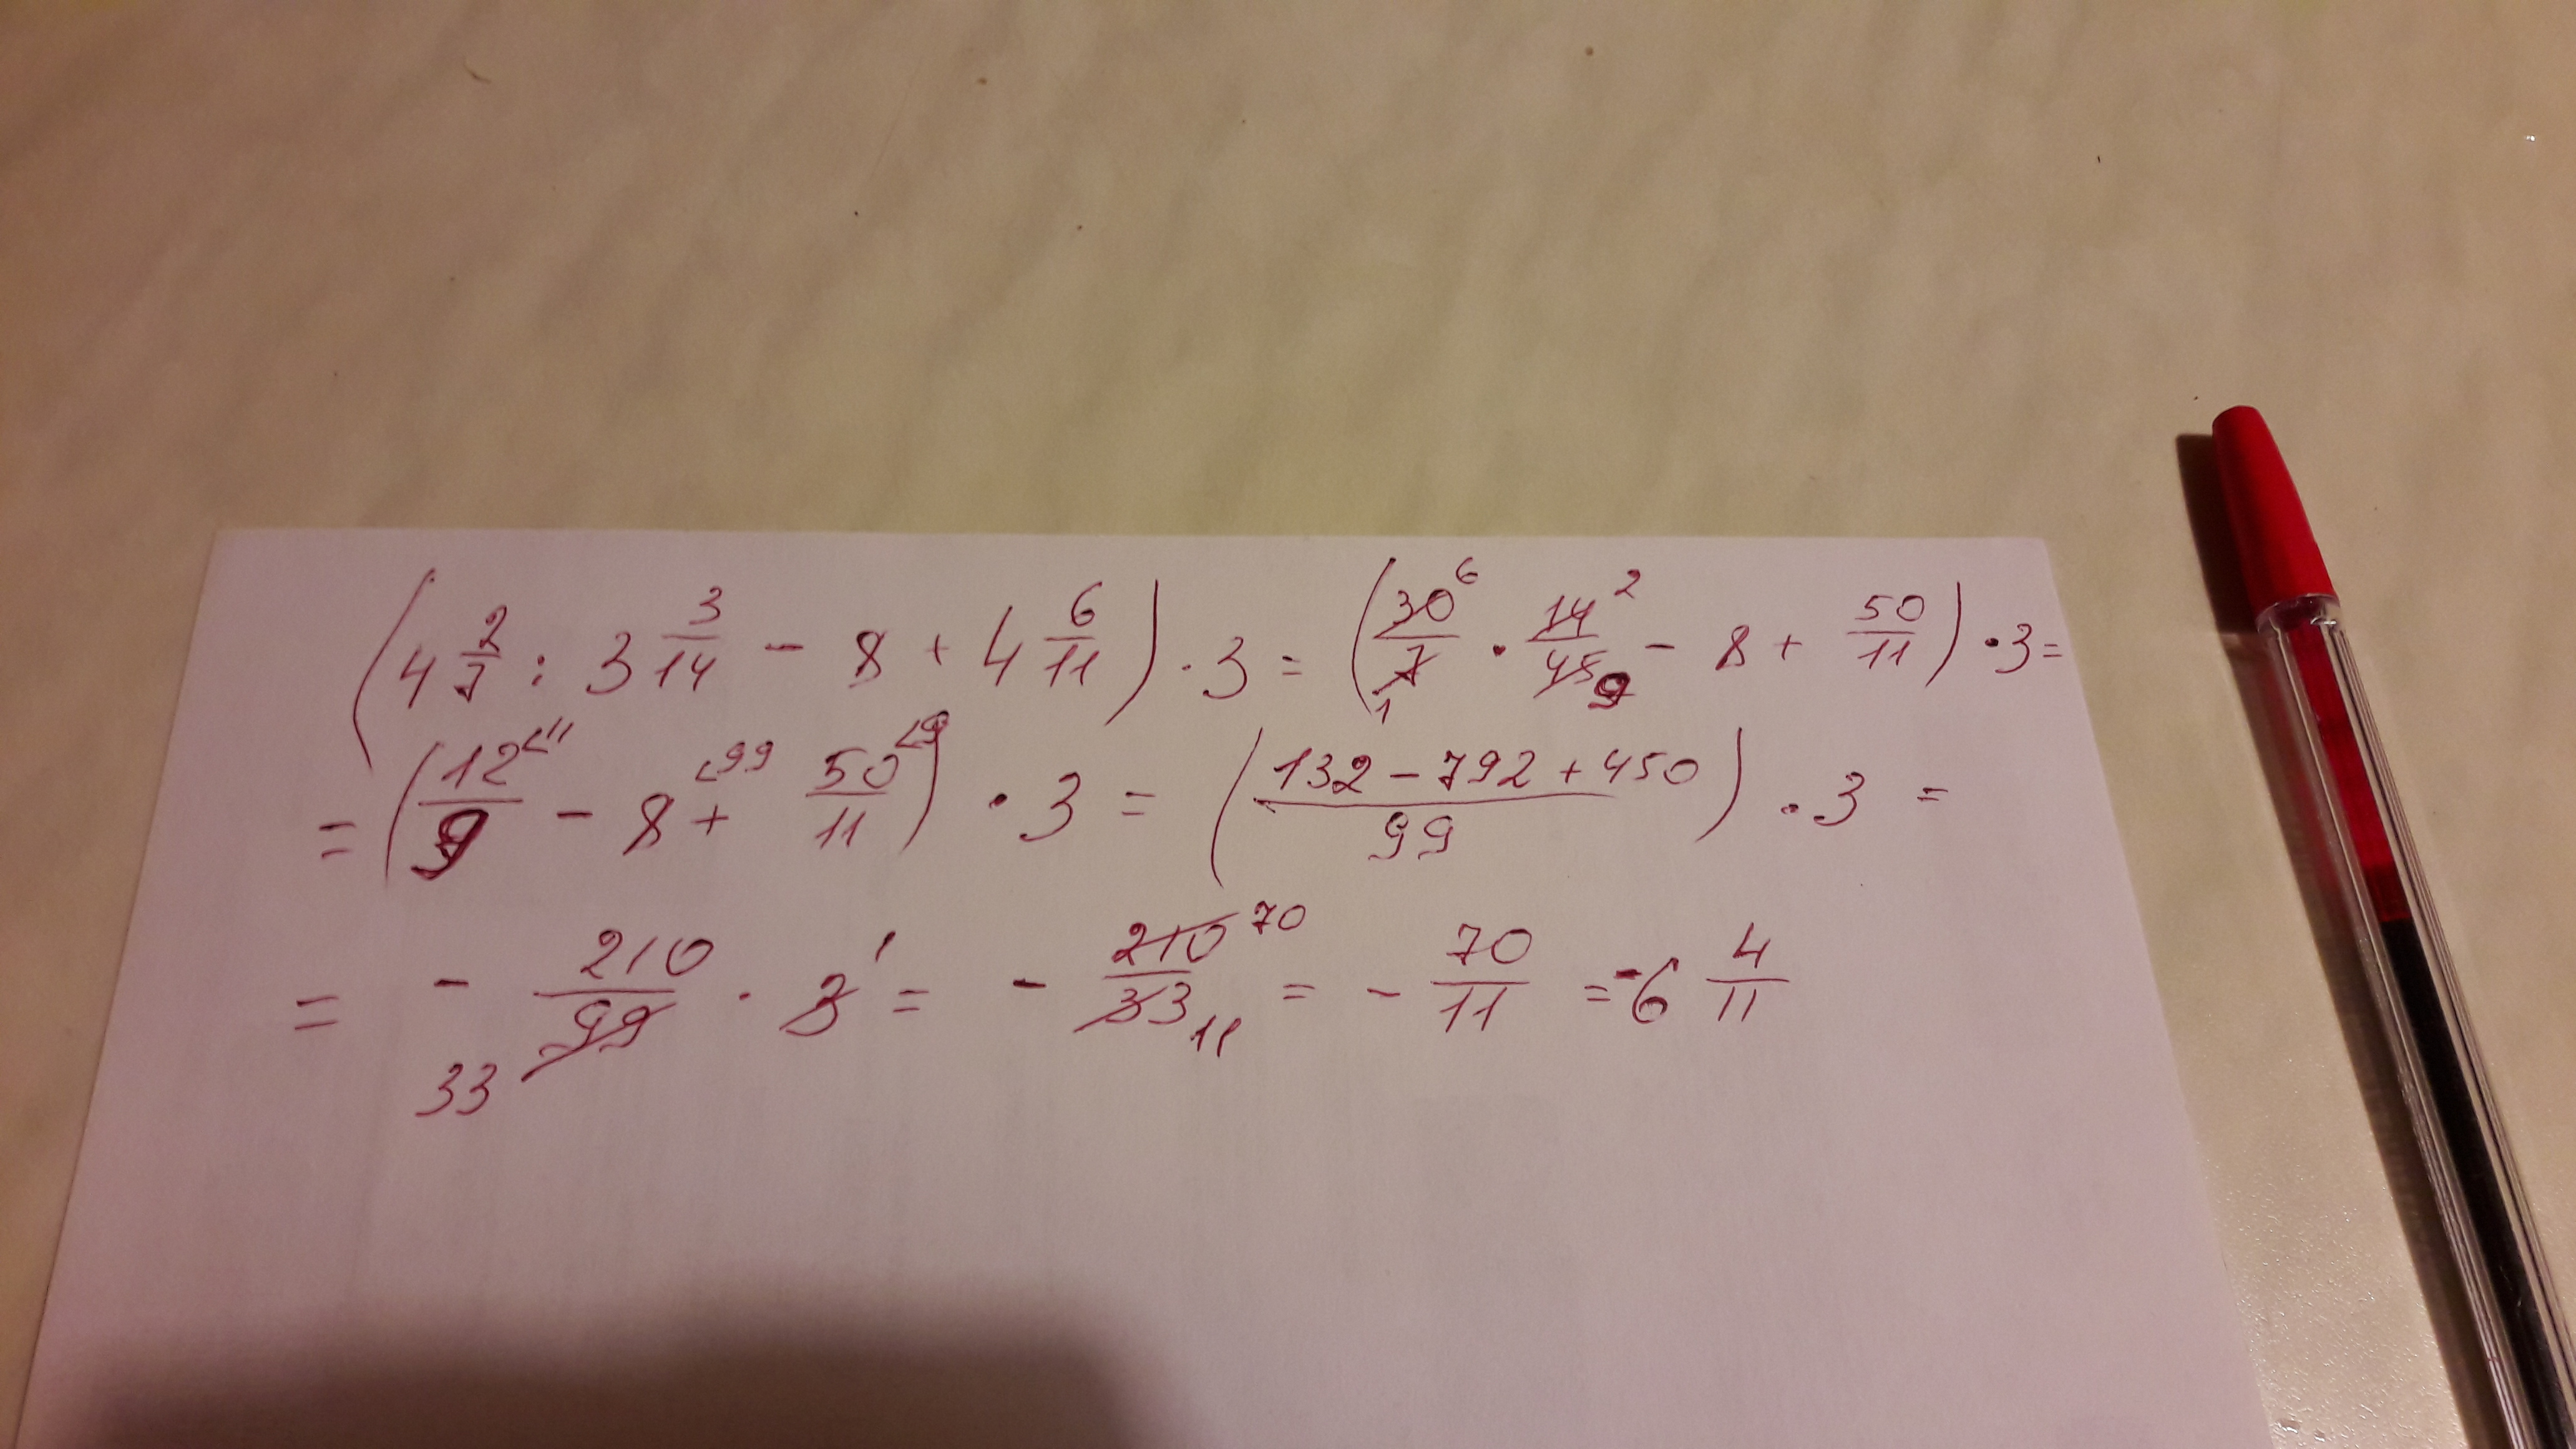 (4 2/7 : 3 3/14 - 8 + 4 6/11) · 3 = (30⁶/7 1 · 14²/45 9 - 8 + 50/11) · 3 =
= (12 ∠11/9 - 8 ∠99 + 50 ∠9/11) · 3 = (132 - 792 + 450/99) · 3 =
= - 210/99 33 · 3 ¹ = - 210 70/33 11 = - 70/11 = -6 4/11